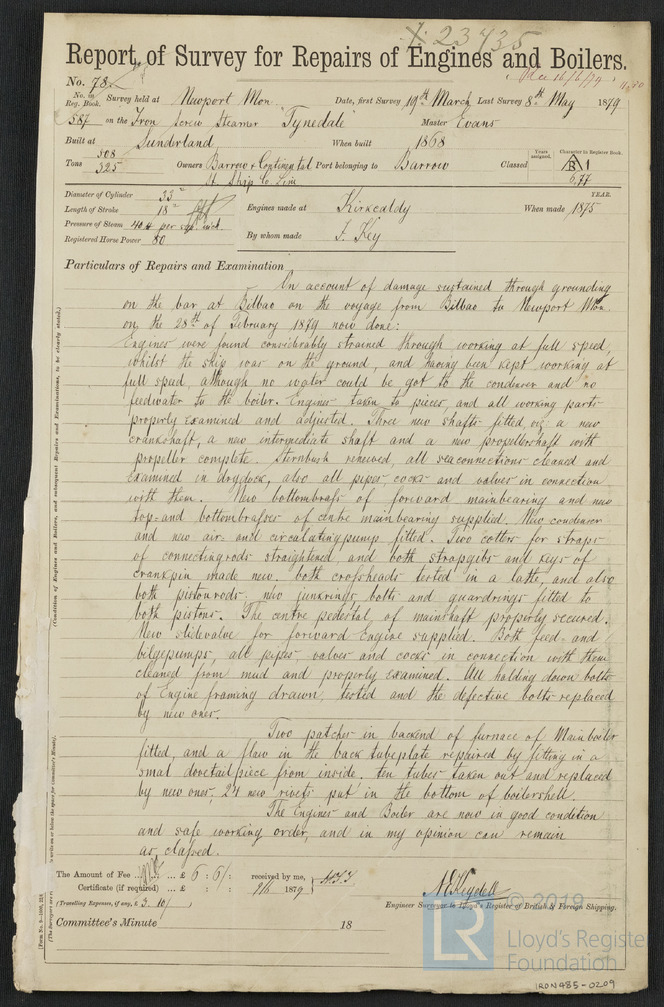 23435
Report of Survey for Repairs of Engines and Boilers.
No. 78
No. in Reg. Book. Survey held at Newport Mon. Date, first Survey 19th March Last Survey 8th May 1879
587 on the Iron Screw Steamer "Tynedale" Master Evans
Built at Sunderland When built 1868
Tons 508 325 Owners Barrow & Continental Port belonging to Barrow Classed Years assigned. Character in Register Book. 1
St. Ship Co. Lim 6,77
Diameter of Cylinder 33"
Length of Stroke 18" Engines made at Kirkcaldy YEAR. When made 1875
Pressure of Steam 40 lb per sq. inch
Registered Horse Power 80 By whom made J. Key
Particulars of Repairs and Examination
On account of damage sustained through grounding
on the bar at Bilbao on the voyage from Bilbao to Newport Mon.
on the 28th of February 1879 now done:
Engines were found considerably strained through working at full speed,
whilst the ship was on the ground, and having been kept working at
full speed, although no water could be got to the condenser and no
feedwater to the boiler. Engines taken to pieces, and all working parts
properly examined and adjusted. Three new shafts fitted, viz: a new
crankshaft, a new intermediate shaft and a new propellershaft with
propeller complete. Sternbush renewed, all seaconnections cleaned and
examined in drydock, also all pipes cocks and valves in connection
with them. New bottombrass of forward mainbearing and new
top- and bottombrasses of centre mainbearing supplied. New condenser
and new air- and circulatingpump fitted. Two cotters for straps
of connectingrods straightened, and both strapgibs and keys of
crankpin made new. both crossheads tested in a lathe, and also
both pistonrods. new junkrings bolts and guardrings fitted to
both pistons. The centre pedestal of mainshaft properly secured.
New slidevalve for forward Engine supplied. Both feed- and
bilgepumps, all pipes, valves and cocks in connection with them
cleaned from mud and properly examined. All holding down bolts
of Engine framing drawn, tested and the defective bolts replaced
by new ones.
Two patches in backend of furnace of Mainboiler
fitted, and a flaw in the back tubeplate repaired by fitting in a
small dovetailpiece from inside. ten tubes taken out and replaced
by new ones. 24 new rivets put in the bottom of boilershell.
The Engines and Boiler are now in good condition
and safe working order, and in my opinion can remain
as classed.
The Amount of Fee ... £ 6 : 6/ : received by me,
Certificate (if required) ... £ : : 9/6 1879
(Travelling Expenses, if any, £ 3.10/ )
Engineer Surveyor to Lloyd's Register of British & Foreign Shipping.
Committee's Minute 18
© 2019
LR Lloyd's Register
Foundation
IRON485-0209